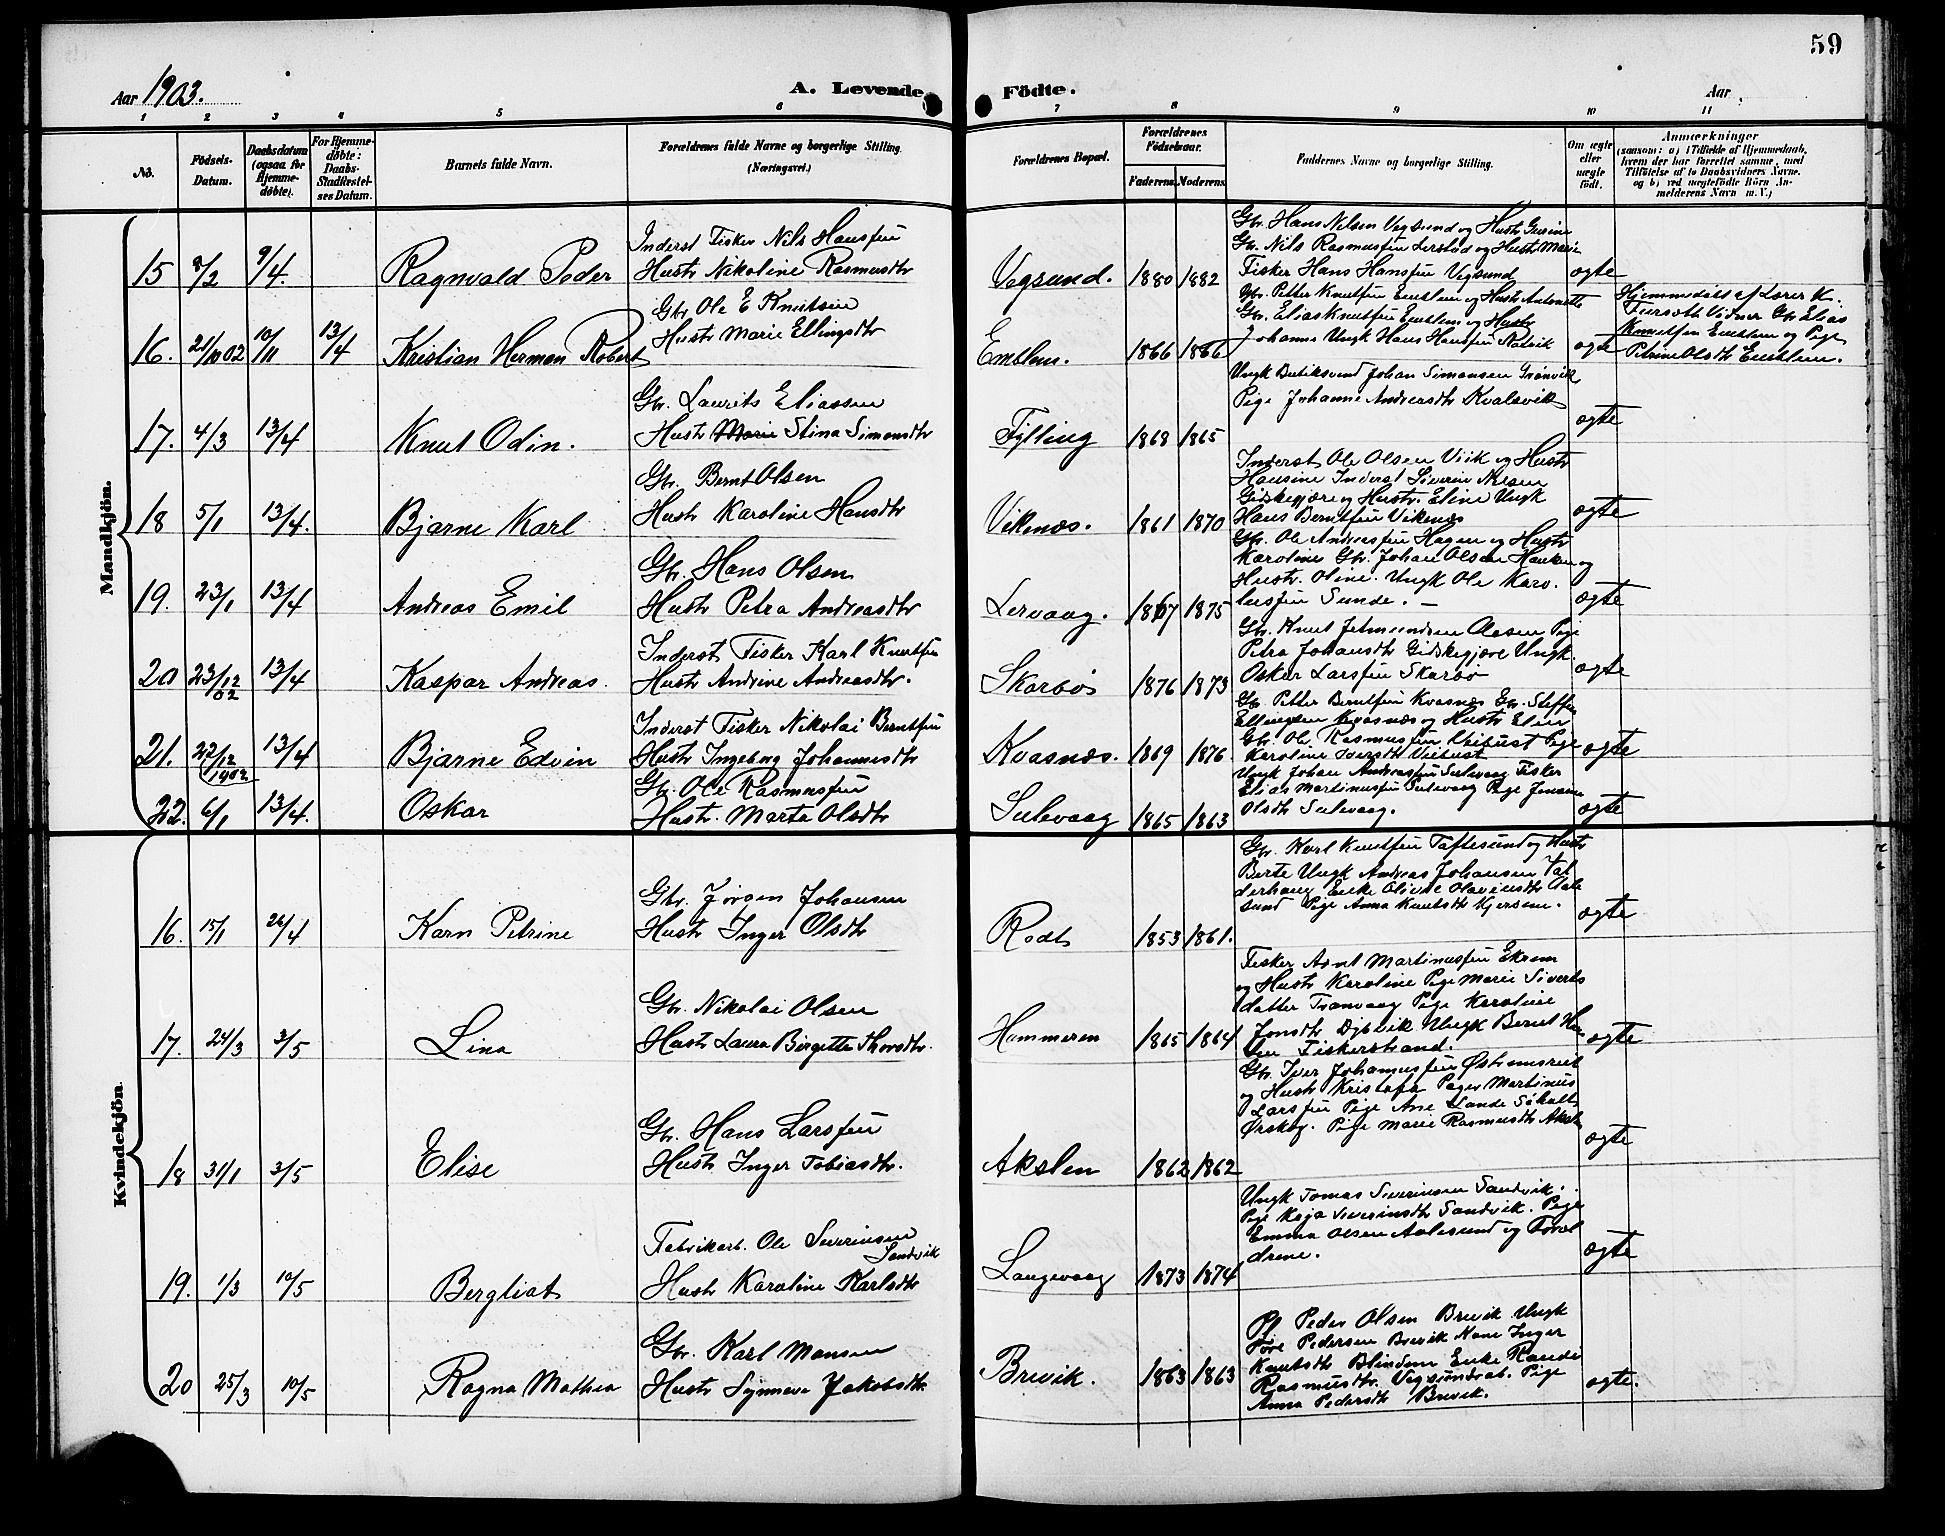 59
Aar 1903.
A. Levende Födte.
Aar
1 2 3 4 5 6 7 8 9 10 11
No.
Födsels-Datum.
Daabsdatum (ogsaa for Hjemmedöbte).
For Hjemmedöbte: Daabs-Stadfestelses Datum.
Barnets fulde Navn.
Forældrenes fulde Navne og borgerlige Stilling. (Næringsvei.)
Forældrenes Bopæl.
Forældrenes Födselsaar.
Faderens. Moderens.
Faddernes Navne og borgerlige Stilling.
Om ægte eller uægte födt.
Anmærkninger
(saasom: a) i Tilfælde af Hjemmedaab, hvem der har forrettet samme, med Tilföielse af to Daabsvidners Navne. og b) ved uægtefödte Börn Anmelderens Navn m. V.)
Mandkjön.
15 8/2 9/4. Ragnvald Peder
Inderst Fisker Nils Hansen
Hustr Nikoline Rasmusdtr
Vegsund. 1880 1882
Gbr. Hans Nilsen Vegsund og Hustr Gusine
Gbr. Nils Rasmussen Lerstad og Hustr Marie
Fisker Hans Hansen Vegsund
ogte
16. 21/10 02 10/11 13/4 Kristian Herman Robert
Gbr Ole E Knutsen
Hustr Marie Ellingsdtr
Emblem. 1866 1866
Gbr. Petter Knutsen Emblem og Hustr Antonette
Gbr. Elias Knutsen Emblem og Hustr
Johanna Ungk Hans Hansen
ogte
Hjemmedöbt af Lærer K.
Vidner Gbr Elias
Knutsen Emblem og Pige
Petrine Olsdtr Emblem.
17. 4/3 13/4 Knut Odin.
Gbr. Laurits Eliassen
Hustr Marie Stina Simonsdtr
Fylling 1868 1865
Ungk Butiksvend Johan Simonsen Grønvik
Pige Johanne Andreasdtr Kvalsvik
ogte
18 5/1 13/4. Bjarne Karl
Gbr. Bernt Olsen
Hustr Karoline Hansdtr
Vikenæs. 1861 1870
Inderst Ole Olsen Viik og Hustr
Hansine Inderst Siverin
Gidskegjære og Hustr. Eline Ungk
Hans Berntsen Vikenæs
ogte
19. 23/1 13/4 Andreas Emil
Gbr. Hans Olsen
Hustr Petra Andreasdtr
Lervaag. 1867 1875
Gbr. Ole Andreassen Hagen og Hustr
Karoline Gbr. Johan Olsen og
Hustr Oline. Ungk Ole Karo.
lussen Sunde. —
ogte
20 23/12 02 13/4 Kaspar Andreas.
Inderst Fisker Karl Knutsen
Hustr Andrine Andreasdtr.
Skarbø 1876 1873
Gbr. Knut Jetmundsen Pige
Petra Johansdtr Gidskegjøre Ungk.
Oskar Larssen Skarbø
ogte
21. 22/12 1902 13/4 Bjarne Edvin
Inderst Fisker Nikolai Berntsen
Hustr Ingeborg Johannesdtr
Kvasnæs. 1869 1876
Gbr. Petter Berntsen Kvasnæs Gbr. Steffen
Ellingsen Kvasnæs og Hustr Elen
Gbr. Ole Rasmussen Veibust Pige
Karoline Iversdtr Veibust
ogte
22. 6/1 13/4. Oskar
Gbr. Ole Rasmussen
Hustr. Marta Olsdtr
Sulevaag 1865 1863
Ungk Johan Andreassen Sulevaag Fisker
Elias Martinussen Sulevaag Pige Jensine
Olsdtr Sulevaag.
ogte
Kvindekjön.
16. 15/1 26/4 Karn Petrine
Gbr. Jørgen Johansen
Hustr Inger Olsdtr
Rødt 1853 1861.
Gbr. Karl Knutsen Taftesund og Hustr
Berte Ungk Andreas Johansen Val
derhaug Enke Olivie Olavinsdtr Aale
sund Pige Anna Knutsdtr Hjersem.
ogte
17. 24/3 3/5 Lina
Gbr. Nikolai Olsen
Hustr Laura Birgette Thorsdtr.
Hammeren 1865 1864
Fisker Arnt Martinussen Ekrem
og Hustr Karoline Pige Marie Siverts
datter Tranvaag Pige Karoline
Jonsdtr Djbvik Ungk Bernt Han
sen Fiskerstrand.
ogte
18 31/1 3/5 Elise
Gbr. Hans Larssen
Hustr Inger Tobiasdtr.
Akslen 1862 1862
Gbr. Iver Johannessen Østremsreit
og Hustr Kristofa Pager Martinus
Larssen Pige Ane Lande Søholt
Ørskog. Pige Marie Rasmusdtr Akslen
ogte
19. 1/3 10/5 Bergliot
Fabrikarb. Ole Severinsen
Sandvik
Hustr Karoline Karlsdtr
Langevaag 1873 1874
Ungk Tomas Severinsen Sandvik.
Pige Kaja Severinsdtr Sandvik. Pige
Emma Olsen Aalesund og Foræl
drene.
ogte
20 25/3 10/5 Ragna Mathea
Gbr. Karl Monsen
Hustr Synneve Jakobsdtr.
Brevik. 1863 1863
Peder Olsen Brevik Ungk
Tore Pedersen Brevik Kone Inger
Knutsdtr Blindem Enke Rande
Rasmusdtr. Vegsundrab. Pige
Anna Pedersdtr Brevik.
ogte.